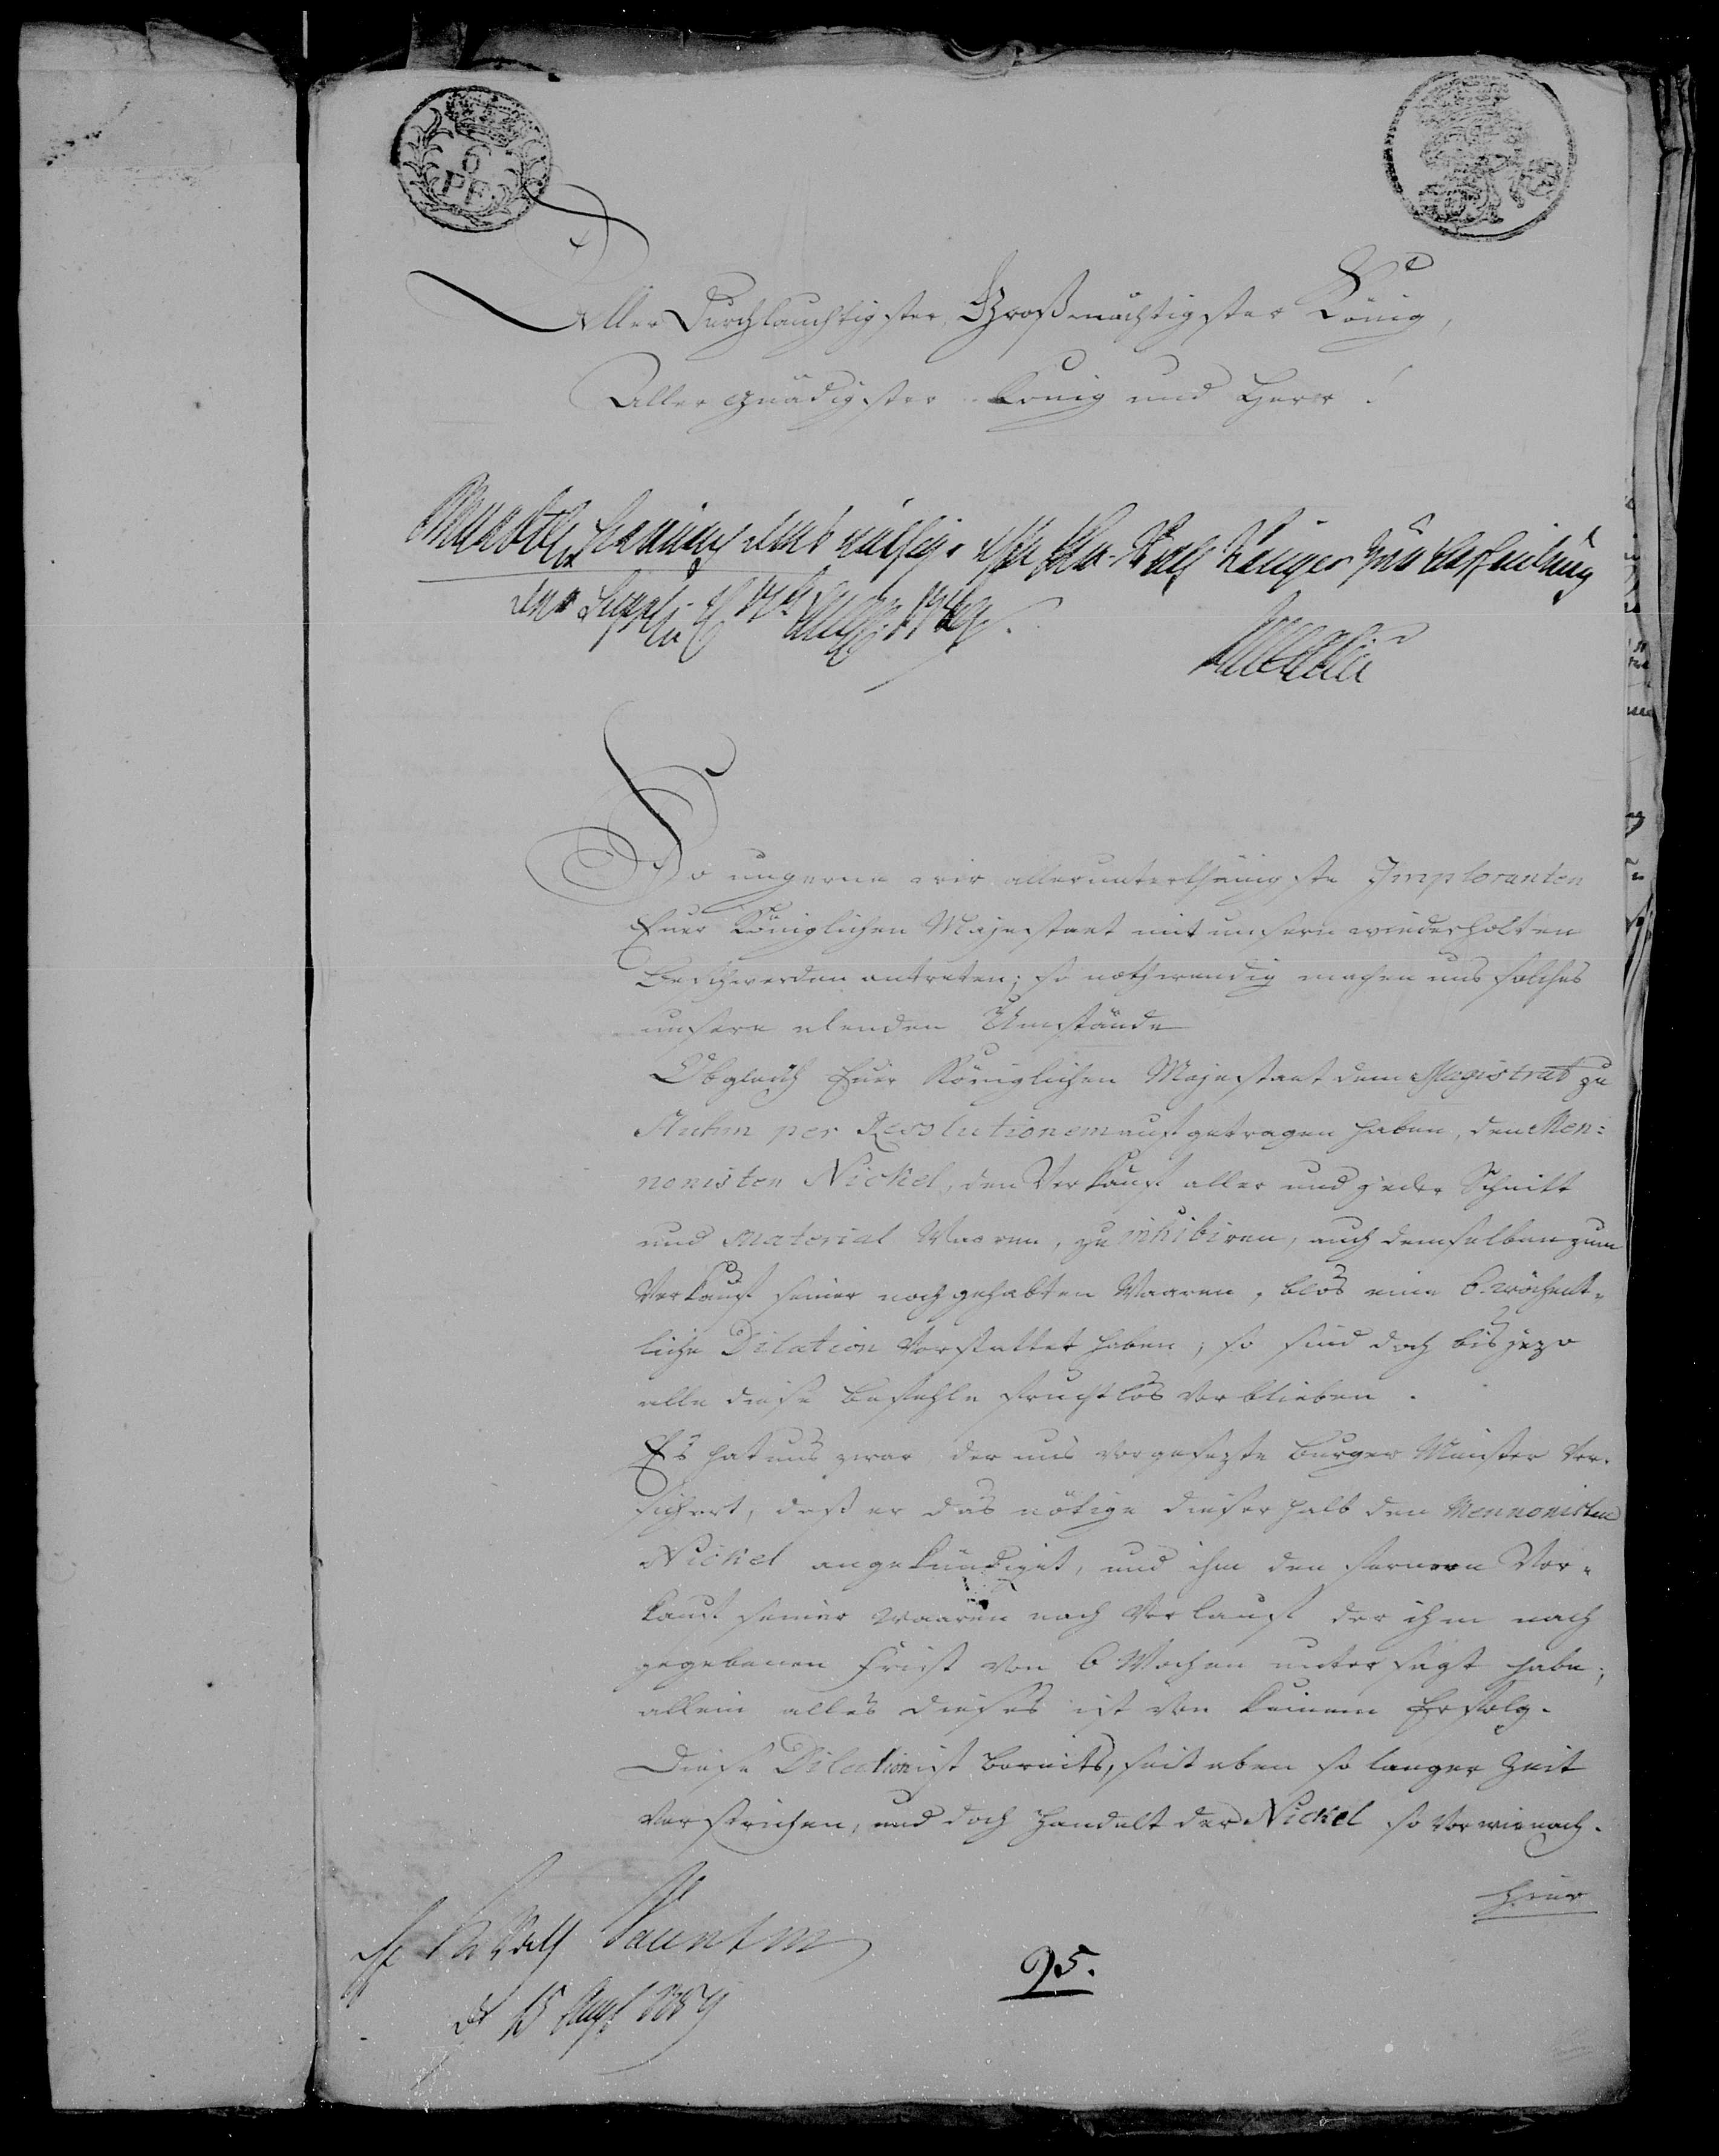 6
PF
Aller Durchlauchtigster, Großmächtigster König,
Aller gnädigster König und Herr!
So ungerne wir allerunterthänigste Imploranten
Euer Königlichen Majestaet mit unsern wiederholten
Beschwerden antreten; so nothwendig machen uns solches
unsere elenden Umstände
Obgleich Euer Königlichen Majestaet dem Magistrat zu
Stuhm per Resolutionem aufgetragen haben, den Men:
nonisten Nickel, den Verkauf aller und jeder Schnitt
und Material Waaren, zu inhibiren, auch demselben zum
Verkauf seiner noch gehabten Waaren, blos eine 6 wöchent-
liche Dilation verstattet haben; so sind doch bis jezo
alle diese Befehle fruchtlos verblieben.
Es hat uns zwar der uns vorgesezte Burger Meister ver-
sichert, daß er das nötige dieserhalb den Mennonisten
Nickel angekündiget, und ihm den fernern Ver-
kauf seiner Waaren nach Verlauf der ihm nach
gegebenen Frist von 6 Wochen untersagt habe;
allein alles dieses ist von keinem Erfolg.
Diese Dilation ist bereits, seit eben so langer Zeit
verstrichen, und doch handelt der Nickel so vor wie nach.
hier
95.